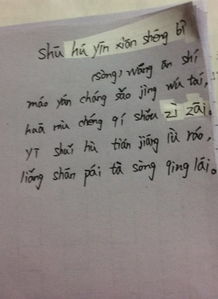 shū hú yīn xiān shēng bì
(sòng) wáng ān shí
máo yán cháng sǎo jìng wú tái,
huā mù chéng qí shǒu zì zāi.
yī shuǐ hù tián jiāng lǜ rào,
liǎng shān pái tà sòng qīng lái.